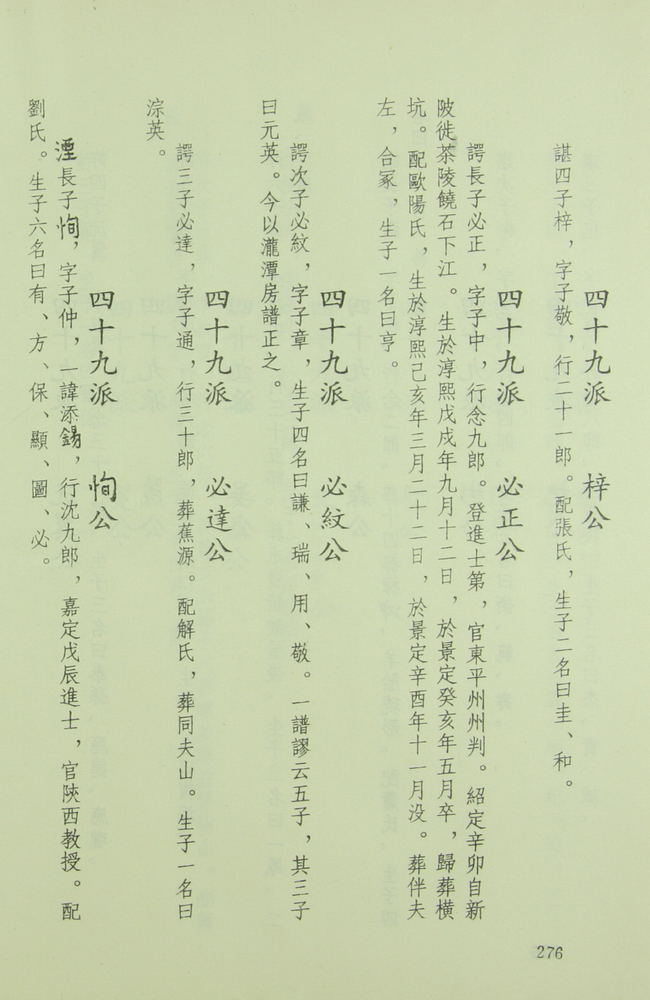 四十九派　梓公
諶四子梓，字子敬，行二十一郎。配張氏，生子二名曰圭、和。
四十九派　必正公
諤長子必正，字子中，行念九郎。登進士第，官東平州州判。紹定辛卯自新
陂徙茶陵饒石下江。生於淳熙戊戌年九月十二日，於景定癸亥年五月卒，歸葬橫
坑。配歐陽氏，生於淳熙己亥年三月二十二日，於景定辛酉年十一月没。葬伴夫
左，合冢，生子一名曰亨。
四十九派　必紋公
諤次子必紋，字子章，生子四名曰謙、瑞、用、敬。一譜謬云五子，其三子
曰元英。今以瀧潭房譜正之。
四十九派　必達公
諤三子必達，字子通，行三十郎，葬蕉源。配解氏，葬同夫山。生子一名曰
淙英。
四十九派　恂公
湮長子恂，字子仲，一諱添錫，行沈九郎，嘉定戊辰進士，官陝西教授。配
劉氏。生子六名曰有、方、保、顯、圖、必。
276